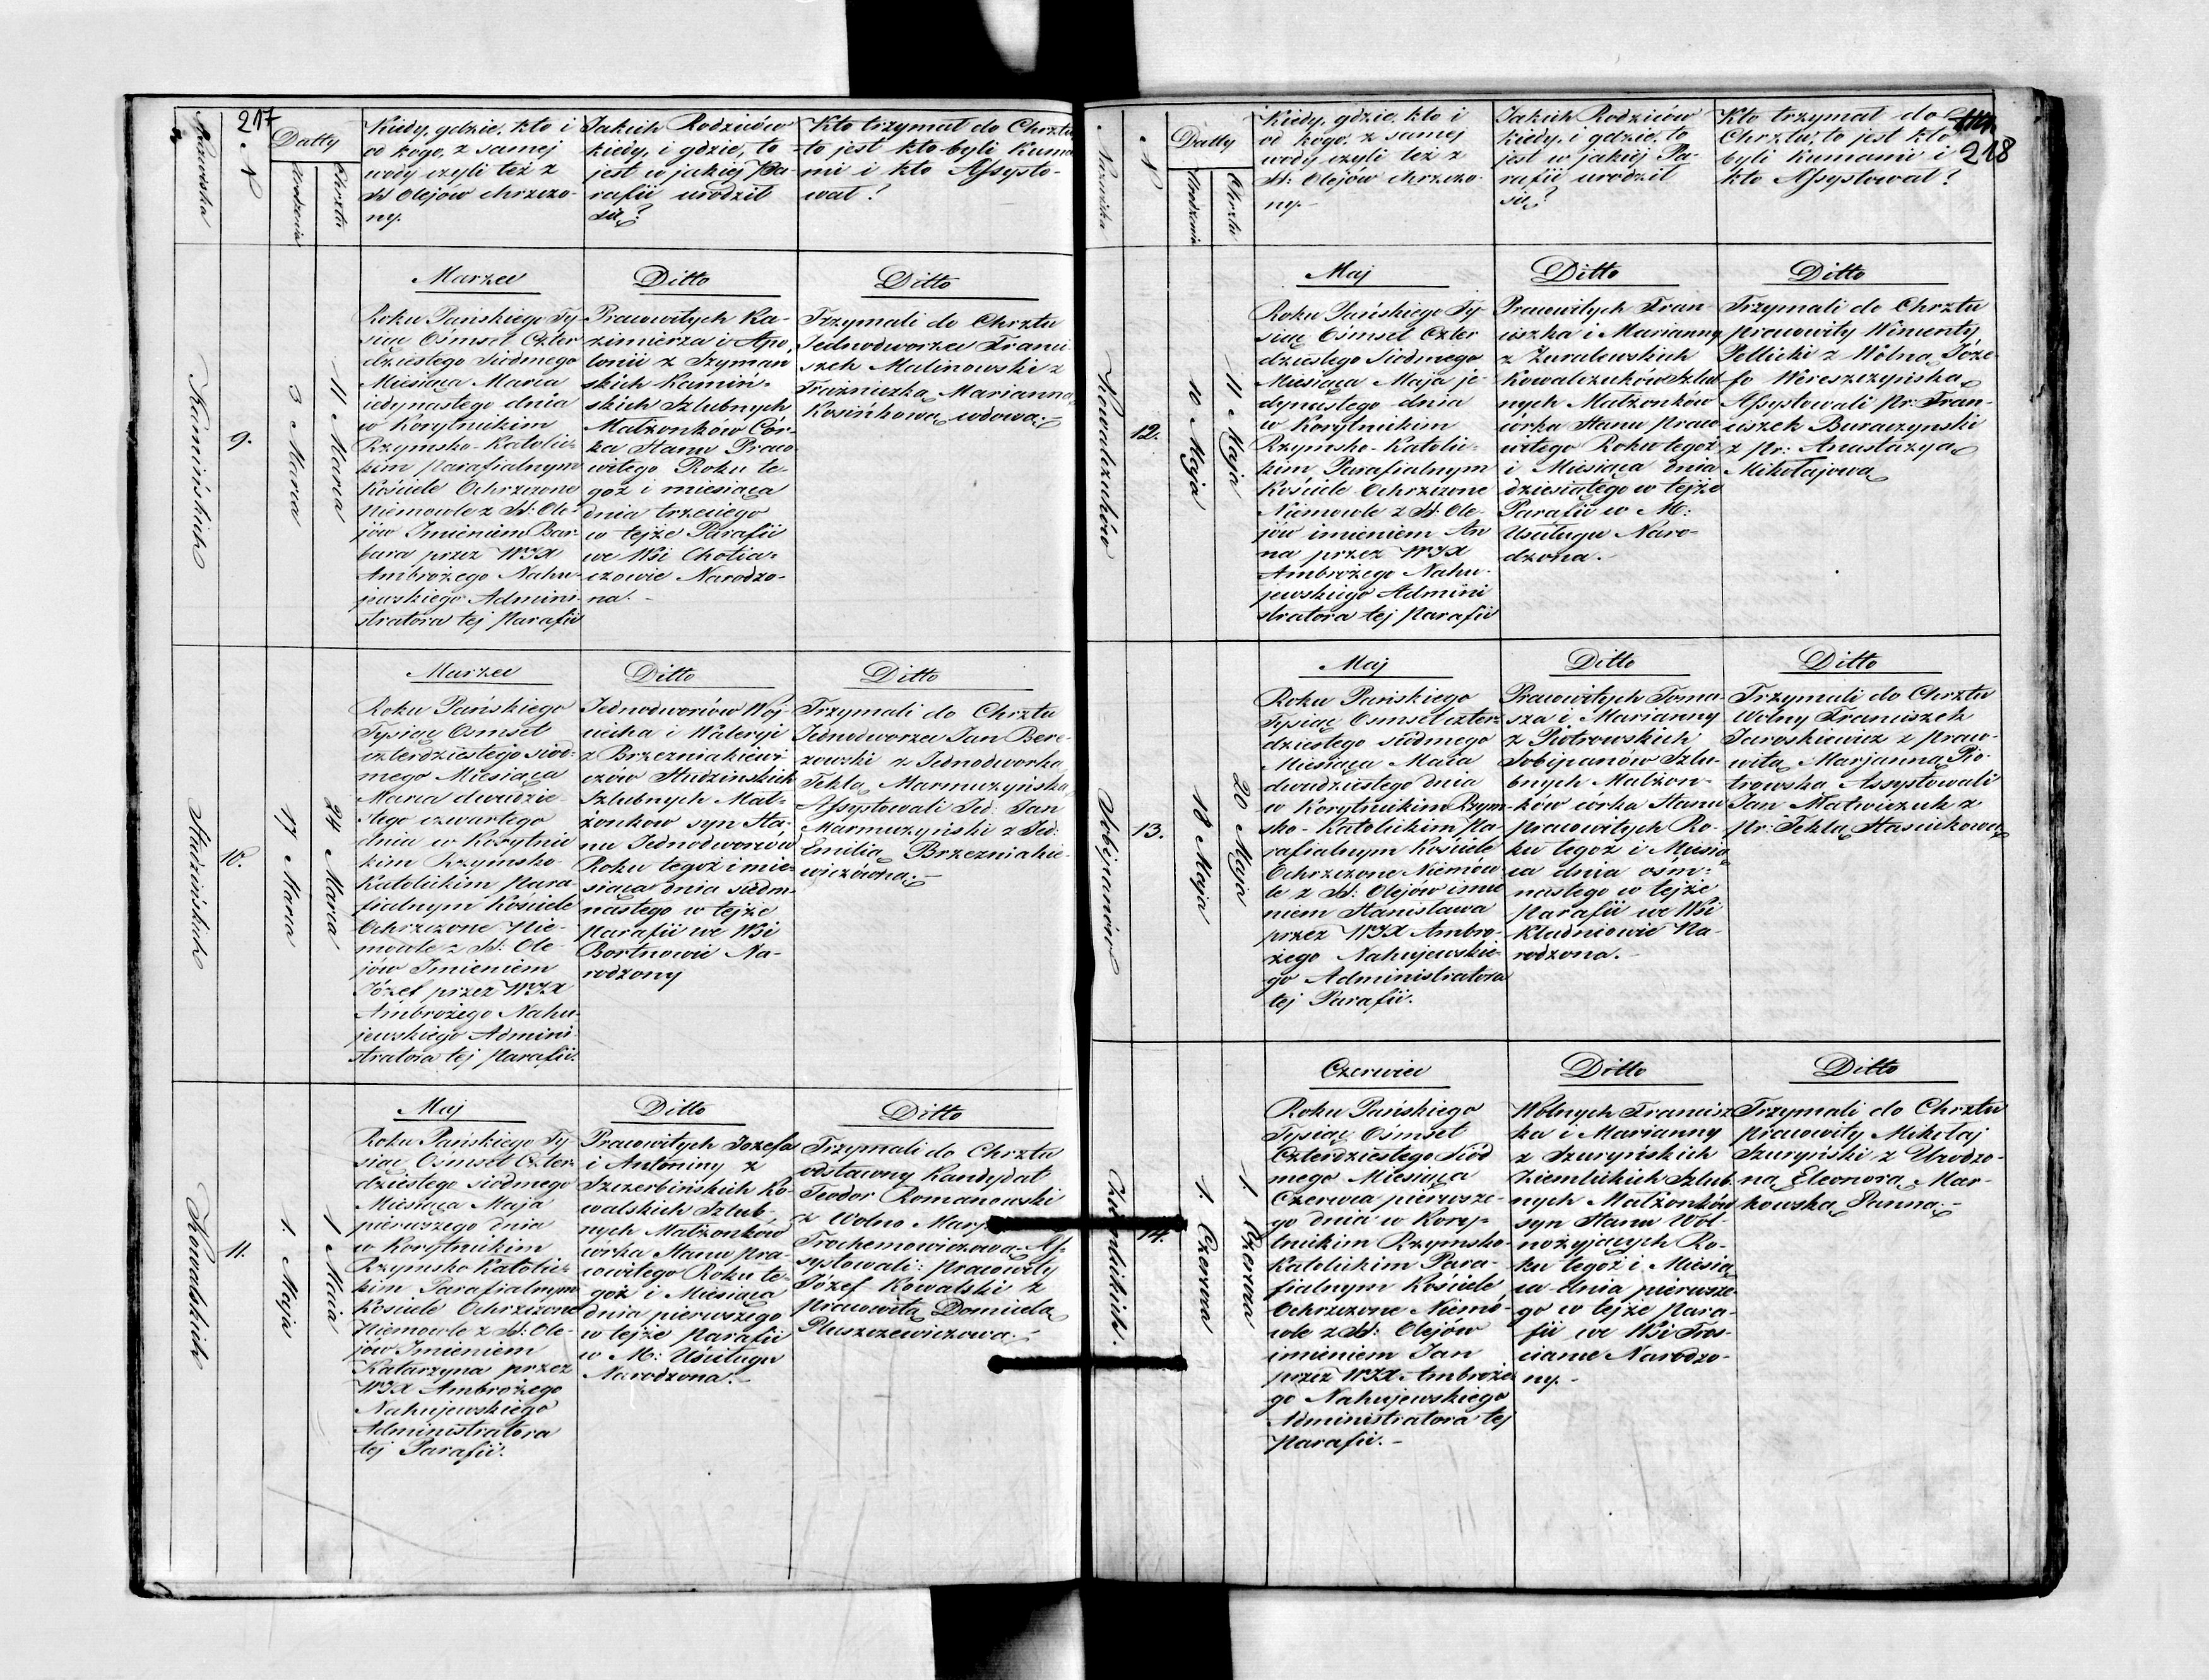 217
Nazwiska
N
Datty
Urodzenia
Chrztu
Kiedy, gdzie, kto i
od kogo, z samej
wody czyli też z
SS Olejów chrzczo-
ny.
Jakich Rodziców
kiedy, i gdzie, to
jest w jakiej Pa-
rafii urodził
się?
Kto trzymał do Chrztu
to jest kto byli Kuma-
mi i kto Assysto-
wał?
Kamińskich
9.
3 Marca
11 Marca
Marzec
Roku Pańskiego Ty-
siąc Ośmset Czter
dziestego Siódmego
Miesiąca Marca
iedynastego dnia
w Korytnickim
Rzymsko-Katolic-
kim parafialnym
Kościele Ochrzczone
Niemowle z SS: Ole-
jów Imieniem Bar-
bara przez WJX
Ambrożego Nahu-
jewskiego Admini-
stratora tej parafii
Ditto
Pracowitych Ka-
zimierza i Apo-
lonii z Szymań
skich Kamiń-
skich Szlubnych
Małżonków Cór-
ka Stanu Praco
witego Roku te-
goż i miesiąca
dnia trzeciego
w tejże Parafii
we Wsi Chotia-
czowie Narodzo-
na. -
Ditto
Trzymali do Chrztu
Jednodworzec Franci-
szek Malinowski z
Marianną
Kosińkową wdową.-
Studzińskich
10.
17 Marca
24 Marca
Marzec
Roku Pańskiego
Tysiąc Ośmset
czterdziestego siód-
mego Miesiąca
Marca dwudzie-
stego czwartego
dnia w Korytnic
kim Rzymsko-
Katolickim para
fialnym Kościele
Ochrzczone Nie-
mowle z SS: Ole-
jów Imieniem
Józef przez WJX
Ambrożego Nahu-
jewskiego Admini-
stratora tej parafii.
Ditto
Jednodworców Woj-
ciecha i Waleryi
z Brzezniakiewi
czów Studzinskich
Szlubnych Mał-
żonkow syn Sta-
nu Jednodworców
Roku tegoż i mie-
siąca dnia siedm-
nastego w tejże
parafii we Wsi
Bortnowie Na-
rodzony
Ditto
Trzymali do Chrztu
Jednodworzec Jan Bere-
zowski z Jednodworką
Teklą Marmuzyńską
Assystowali Jed: Jan
Marmuzyński z Jed:
Emilią Brzezniakie-
wiczówną.-
Kowalskich
11.
1. Maja
1 Maia
Maj
Roku Pańskiego Ty-
siąc Ośmset Czter
dziestego siódmego
Miesiąca Maja
pierwszego dnia
w Korytnickim
Rzymsko Katolic-
kim Parafialnym
Kościele Ochrzczone
Niemowle z SS: Ole-
jów Imieniem
Katarzyna przez
WJX Ambrożego
Nahujewskiego
Administratora
tej Parafii.
Ditto
Pracowitych Jozefa
i Antoniny z
Szczerbińskich Ko-
walskich Szlub-
nych Małżonków
córka Stanu pra-
cowitego Roku te-
goż i Miesiąca
dnia pierwszego
w tejże parafii
w M: Uściługu
Narodzona.-
Ditto
Trzymali do Chrztu
odstawny Kandydat
Teodor Romanowski
z Wolno
Trochemowiczową As-
systowali: pracowity
Józef Kowalski z
pracowitą Domicelą
Pluszczewiczową.-
218
Nazwiska
N
Datty
Urodzenia
Chrztu
Kiedy, gdzie, kto i
od kogo, z samej
wody czyli też z
SS: Olejów chrzczo-
ny.-
Jakich Rodziców
kiedy, i gdzie, to
jest w jakiej Pa-
rafii urodził
się?
Kto trzymał do
Chrztu, to jest kto
byli Kumami i
kto Assystował?
Kowalczuków
12.
10 Maja
11 Maja
Maj
Roku Pańskiego Ty-
siąc Ośmset Czter
dziestego Siódmego
Miesiąca Maja je-
dynastego dnia
w Korytnickim
Rzymsko-Katolic-
kim Parafialnym
Kościele Ochrzczone
Niemowle z SS: Ole-
jów imieniem An
na przez WJX
Ambrożego Nahu-
jewskiego Admini
stratora tej Parafii
Ditto
Pracowitych Fran-
ciszka i Marianny
z Żuralewskich
Kowalczuków Szlub
nych Małżonków
córka Stanu praco
witego Roku tegoż
i Miesiąca dnia
dziesiątego w tejże
Parafii w M:
Uściługu Naro-
dzona.-
Ditto
Trzymali do Chrztu
pracowity Wincenty
Pellicki z Wolną Józe-
fą Wereszczyńską
Assystowali pr: Fran-
ciszek Buraczynski
z pr: Anastazyą
Mikołajową
Sobijanów
13.
18 Maja
20 Maja
Maj
Roku Pańskiego
Tysiąc Osmset czter-
dziestego siódmego
Miesiąca Maia
dwudziestego dnia
w Korytnickim Rzym-
sko-Katolickim pa-
rafialnym Kościele
Ochrzczone Niemów-
le z SS: Olejów imie
niem Stanisława
przez WJX Ambro-
żego Nahujewskie-
go Administratora
tej Parafii.
Ditto
Pracowitych Toma-
sza i Marianny
z Piotrowskich
Sobijanów Szlu-
bnych Małżon-
ków córka Stanu
pracowitych Ro-
ku tegoż i Miesią
ca dnia ośm-
nastego w tejże
Parafii we Wsi
Kładniowie Na-
rodzona.-
Ditto
Trzymali do Chrztu
Wolny Franciszek
Jaroskiewicz z praco-
witą Marjanną Pio-
trowską Assystowali
Jan Matwiczuk z
pr: Teklą Stasiukową
Ziemlickich.
14.
1. Czerwca
1. Czerwca
Czerwiec
Roku Pańskiego
Tysiąc Ośmset
Czterdziestego Siód
mego Miesiąca
Czerwca pierwsze-
go dnia w Kory-
tnickim Rzymsko-
Katolickim Para-
fialnym Kościele
Ochrzczone Niemo-
wle z SS: Olejów
imieniem Jan
przez WJX Ambroże
go Nahujewskiego
Administratora tej
Parafii.-
Ditto
Wolnych Francisz
ka i Marianny
z Szuryńskich
Ziemlickich Szlub-
nych Małżonków
syn Stanu Wol-
nożyjących Ro-
ku tegoż i Miesią
ca dnia pierwsze-
go w tejże para-
fii we Wsi Tros-
ciance Narodzo-
ny.-
Ditto
Trzymali do Chrztu
pracowity Mikołaj
Szuryński z Urodzo-
ną Eleonorą Mar-
kowską Panną.-